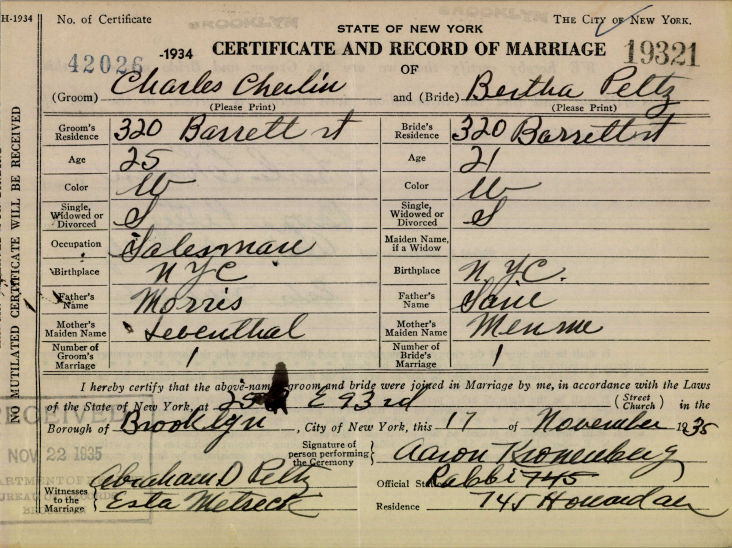 H-1934 No. of Certificate STATE OF NEW YORK THE CITY OF NEW YORK.
42026 -1934 CERTIFICATE AND RECORD OF MARRIAGE 19321
OF
(Groom) Charles Cherlin and (Bride) Bertha Peltz
(Please Print) (Please Print)
Groom's Residence 320 Barrett st Bride's Residence 320 Barrett st
Age 25 Age 21
Color W Color W
Single, Widowed or Divorced S Single, Widowed or Divorced S
Occupation Salesman Maiden Name, if a Widow
Birthplace N.Y.C. Birthplace N.Y.C.
Father's Name Morris Father's Name
Mother's Maiden Name Leventhal Mother's Maiden Name
Number of Groom's Marriage 1 Number of Bride's Marriage 1
I hereby certify that the above-named groom and bride were joined in Marriage by me, in accordance with the Laws
of the State of New York, at E 93rd (Street Church) in the
Borough of Brooklyn, City of New York, this 17 of November 1935
Signature of person performing the Ceremony Aaron Kronenberg
Witnesses to the Marriage Abraham D Peltz Official Rabbi 745
Esta Residence 745 Howard av
NO MUTILATED CERTIFICATE WILL BE RECEIVED
RECEIVED
NOV 22 1935